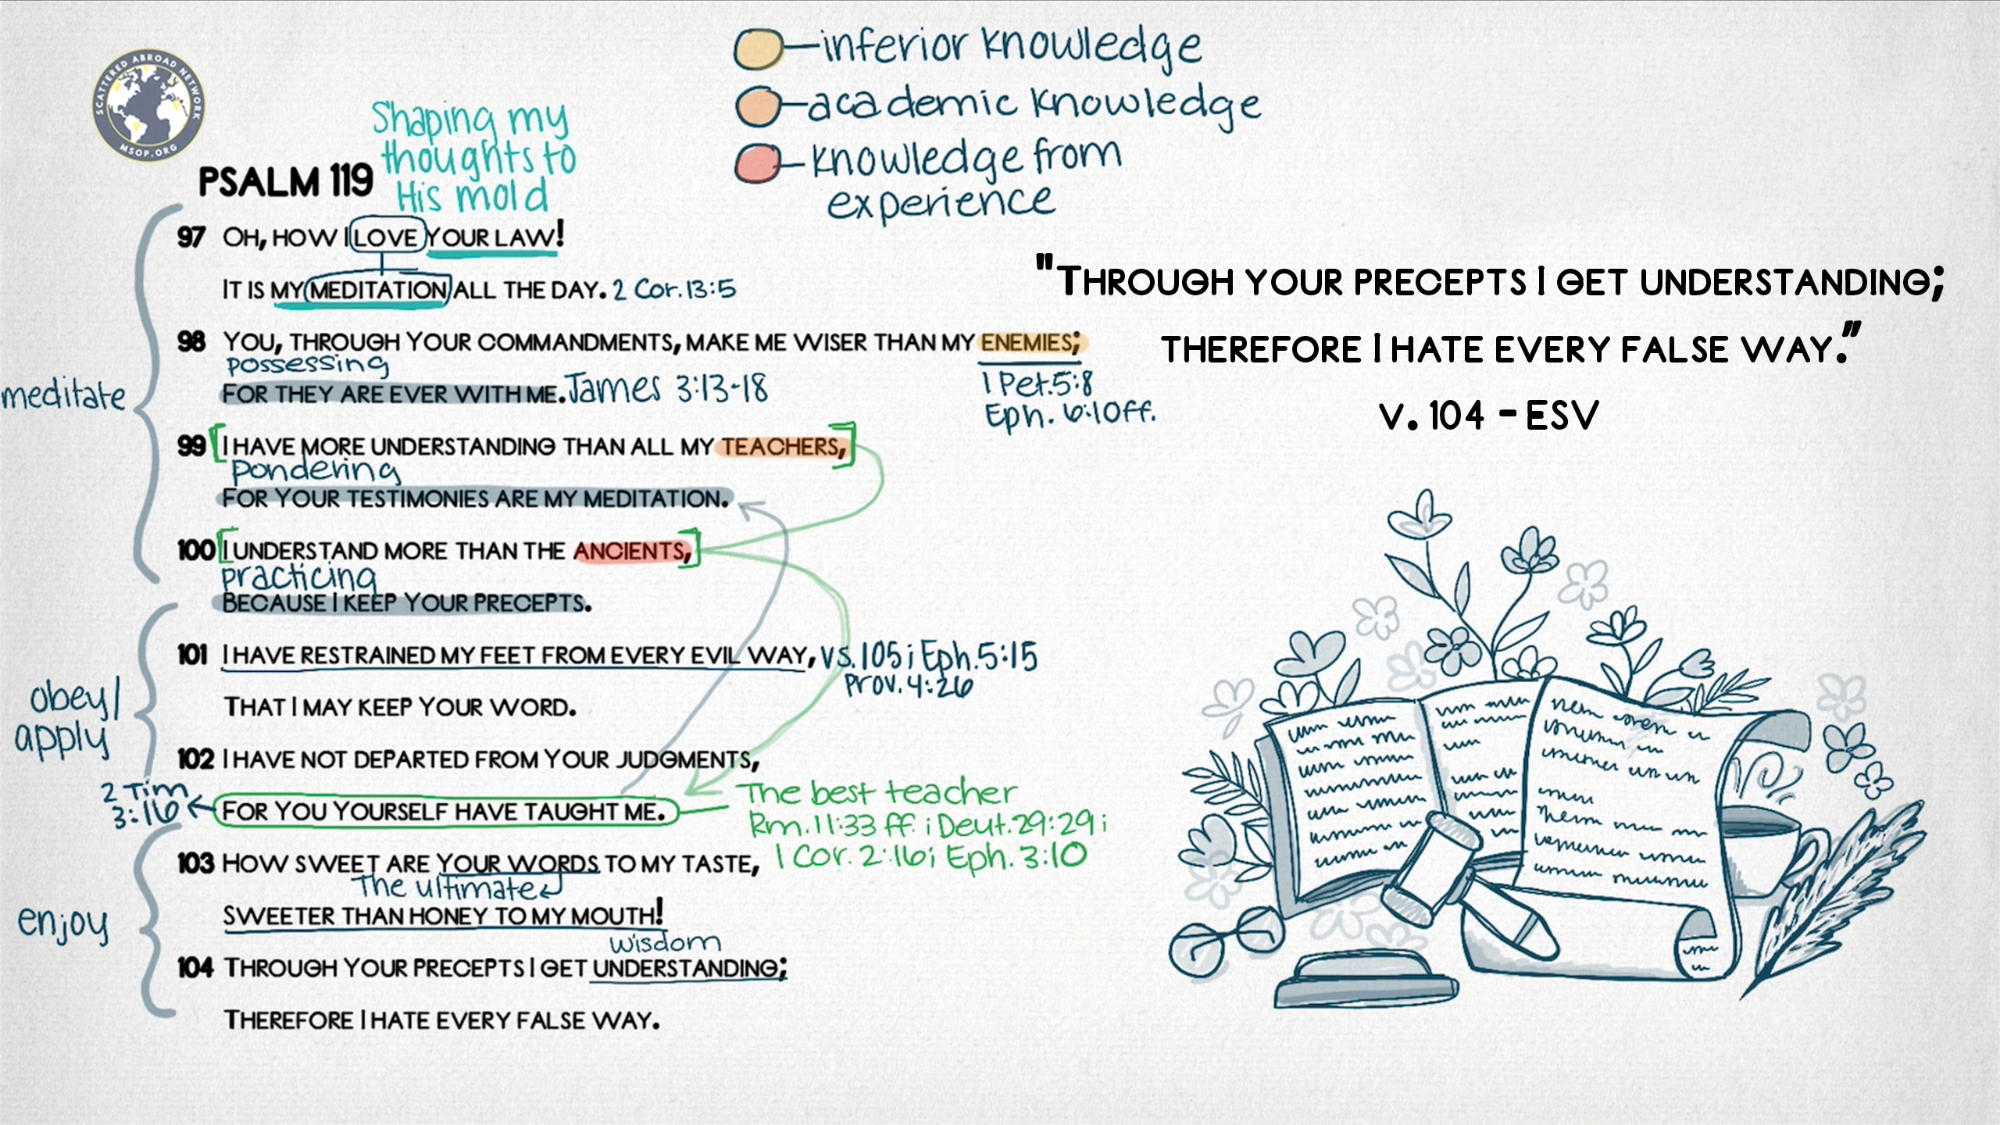 SCATTERED ABROAD NETWORK
MSOP.ORG
inferior knowledge
academic knowledge
knowledge from
experience
Shaping my
thoughts to
His mold
PSALM 119
97 OH, HOW I LOVE YOUR LAW!
IT IS MY MEDITATION ALL THE DAY. 2 Cor. 13:5
98 YOU, THROUGH YOUR COMMANDMENTS, MAKE ME WISER THAN MY ENEMIES;
possessing
FOR THEY ARE EVER WITH ME. James 3:13-18
1 Pet. 5:8
Eph. 6:10ff.
meditate
99 [I HAVE MORE UNDERSTANDING THAN ALL MY TEACHERS,]
pondering
FOR YOUR TESTIMONIES ARE MY MEDITATION.
100 [I UNDERSTAND MORE THAN THE ANCIENTS,]
practicing
BECAUSE I KEEP YOUR PRECEPTS.
101 I HAVE RESTRAINED MY FEET FROM EVERY EVIL WAY, vs. 105; Eph. 5:15
Prov. 4:26
THAT I MAY KEEP YOUR WORD.
obey/
apply
102 I HAVE NOT DEPARTED FROM YOUR JUDGMENTS,
2 Tim
3:16
FOR YOU YOURSELF HAVE TAUGHT ME.
The best teacher
Rm. 11:33 ff; Deut. 29:29;
1 Cor. 2:16; Eph. 3:10
103 HOW SWEET ARE YOUR WORDS TO MY TASTE,
The ultimate
SWEETER THAN HONEY TO MY MOUTH!
enjoy
wisdom
104 THROUGH YOUR PRECEPTS I GET UNDERSTANDING;
THEREFORE I HATE EVERY FALSE WAY.
"THROUGH YOUR PRECEPTS I GET UNDERSTANDING;
THEREFORE I HATE EVERY FALSE WAY."
V. 104 - ESV